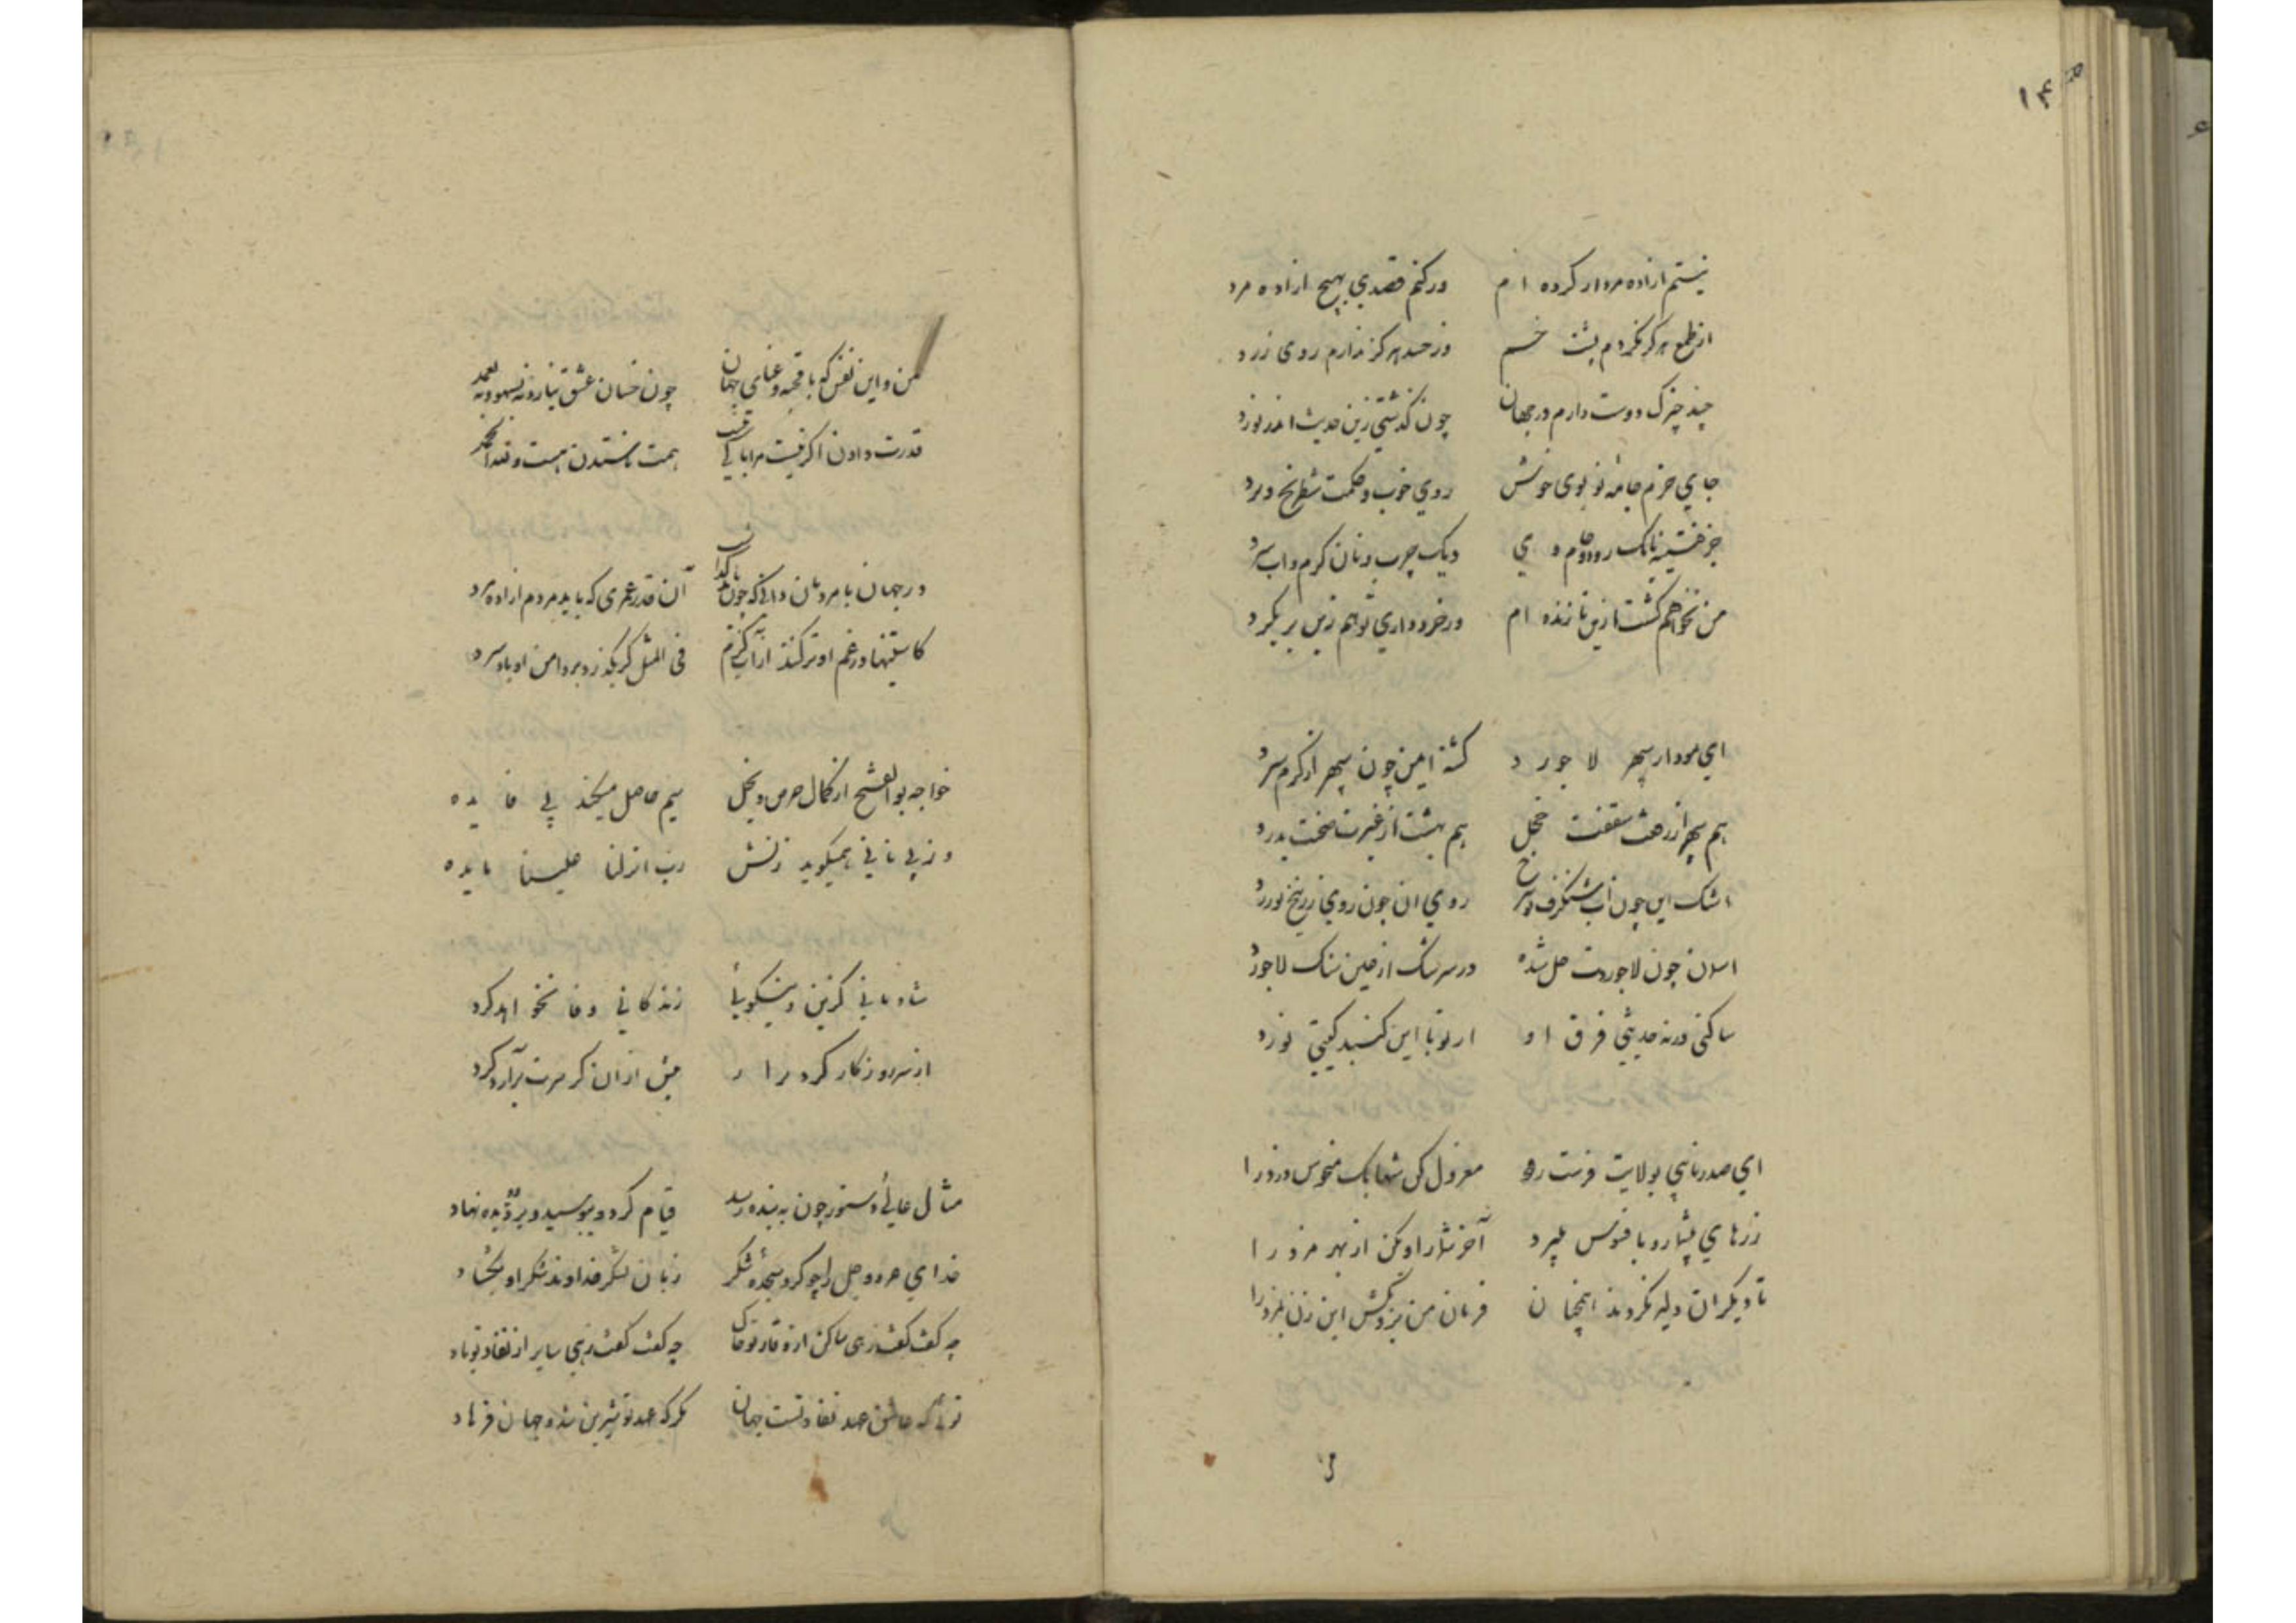 نیستم ازاده مردار کرده ام ورکنم قصدی بهیچ ازاده مرد
از طمع هرگز نکردم پشت خم وز حسد هرکز ندارم روی زرد
چند چیزک دوست دارم در جهان چون گذشتی زین حدیث اندر نورد
جای خرم جامه نو بوی خوش روی خوب و حکمت شطرنج و نرد
جز خشینه نانک رود و جام و می دیک چرب و نان کرم و اب سرد
من نخواهم گشت ازین تا زنده ام ورخرد داری توهم زین بر مکرد
ای مودار سپهر لاجورد کشته ایمن چون سپهر از کرم و سرد
هم سپهر از رفعت سقفت خجل هم بهشت از غیرت صحنت بدرد
اشک این چون اب شنکرف و سرخ روی ان چون روی زرنیخ زرد
اسمان چون لاجوردت حل شده در سرشک از عین سنک لاجورد
ساکنی ورنه حدیثی فرق او از تو تا این کنبد کیتی نورد
ای صدر نایبی بولایت فرست رو معزول کن شهابک منحوس دزد را
زرهای پیشار و بافسوس میبرد آخر شمار او بکن از بهر مزد را
تا دیکران دلیر نکردند اینچنان فرمان من ببر و بکش این زن بمزد را
۱۴۵
من و این نفس که با قحبه رعنای جهان چون خسان عشق نبازم نه بسهو و نه بعمد
قدرت دادن اگر نیست مرا باکی نیست همت ناستدن هست و لله الحمد
در جهان با مردمان دانی که چون باید گذاشت آن قدر عمری که باید مردم ازاده مرد
کاستینها در غم او تر کنند از آب گرم فی المثل کر بگذرد بر دامن او باد سرد
خواجه بوالفتح از کمال حرص و بخل سیم حاصل میکند بی فایده
وز پی نانی همیکوید زنش رب انزل علینا مایده
شادمانی کزین و نیکویی زندکانی وفا نخواهد کرد
از سر روزکار کرد برار پیش ازان کز سرت برآرد کرد
مثال عالی دستور چون به بنده رسید قیام کرد و ببوسید و بر دو دیده نهاد
خدای عز و جل را چو کرد سجده شکر زبان بشکر خداوند شکر او بکشاد
چه کفت کفت زهی ساکن از وقار تو خاک چه کفت کفت زهی سایر از نفاذ تو باد
تویی که عاشق عهد بقا تست جهان مکر که عهد تو شیرین شد و جهان فرهاد